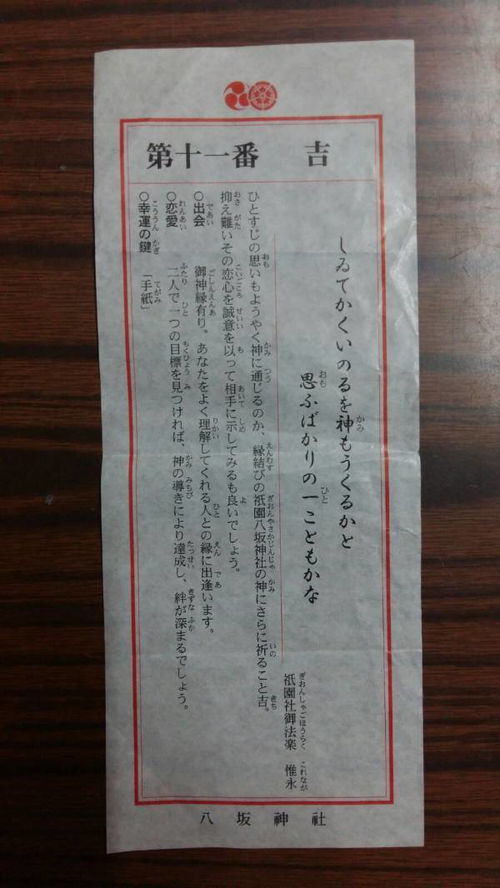 第十一番　吉
しゐてかくいのるを神もうくるかと
思ふばかりの一こともかな
祇園社御法楽　惟永
ひとすじの思いもようやく神に通じるのか、縁結びの祇園八坂神社の神にさらに祈ること吉。
抑え難いその恋心を誠意を以って相手に示してみるも良いでしょう。
○出会　御神縁有り。あなたをよく理解してくれる人との縁に出逢います。
○恋愛　二人で一つの目標を見つければ、神の導きにより達成し、絆が深まるでしょう。
○幸運の鍵　「手紙」
八坂神社